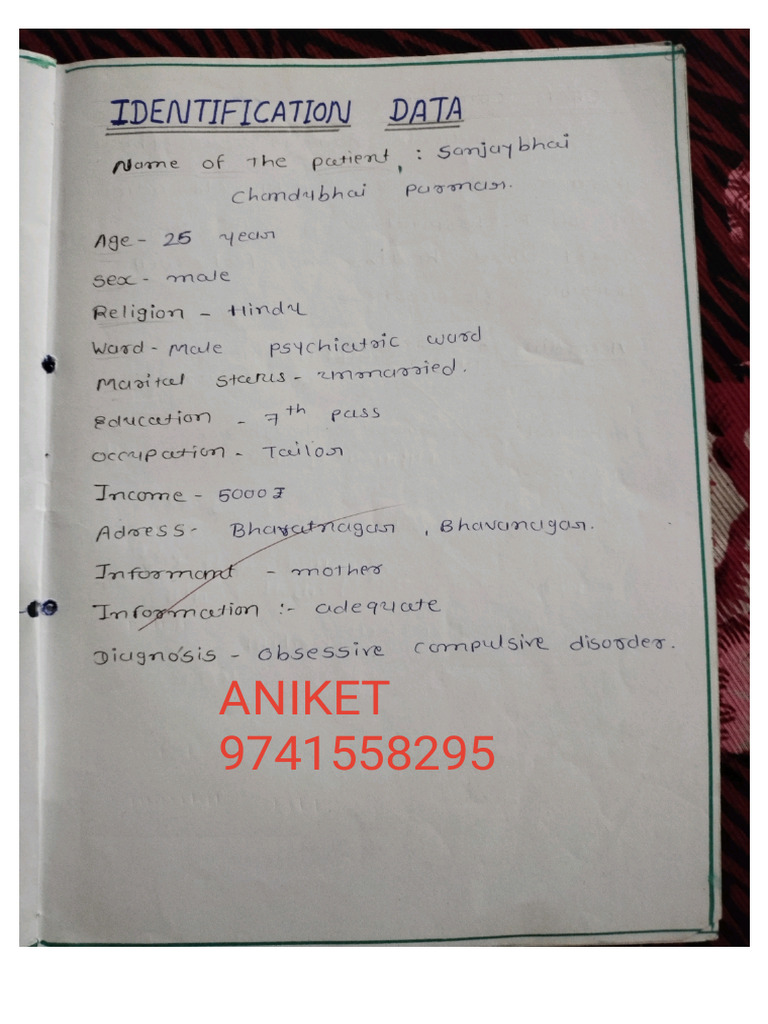 IDENTIFICATION DATA
Name of the patient, : Sanjaybhai
Chandubhai Parmar.
Age - 25 year
Sex - male
Religion - Hindu
Ward - Male psychiatric ward
Marital status - unmarried.
Education - 7th pass
Occupation - Tailor
Income - 5000 ₹
Adress - Bharatnagar , Bhavanagar.
Informant - mother
Information :- adequate
Diagnosis - Obsessive compulsive disorder.
ANIKET
9741558295